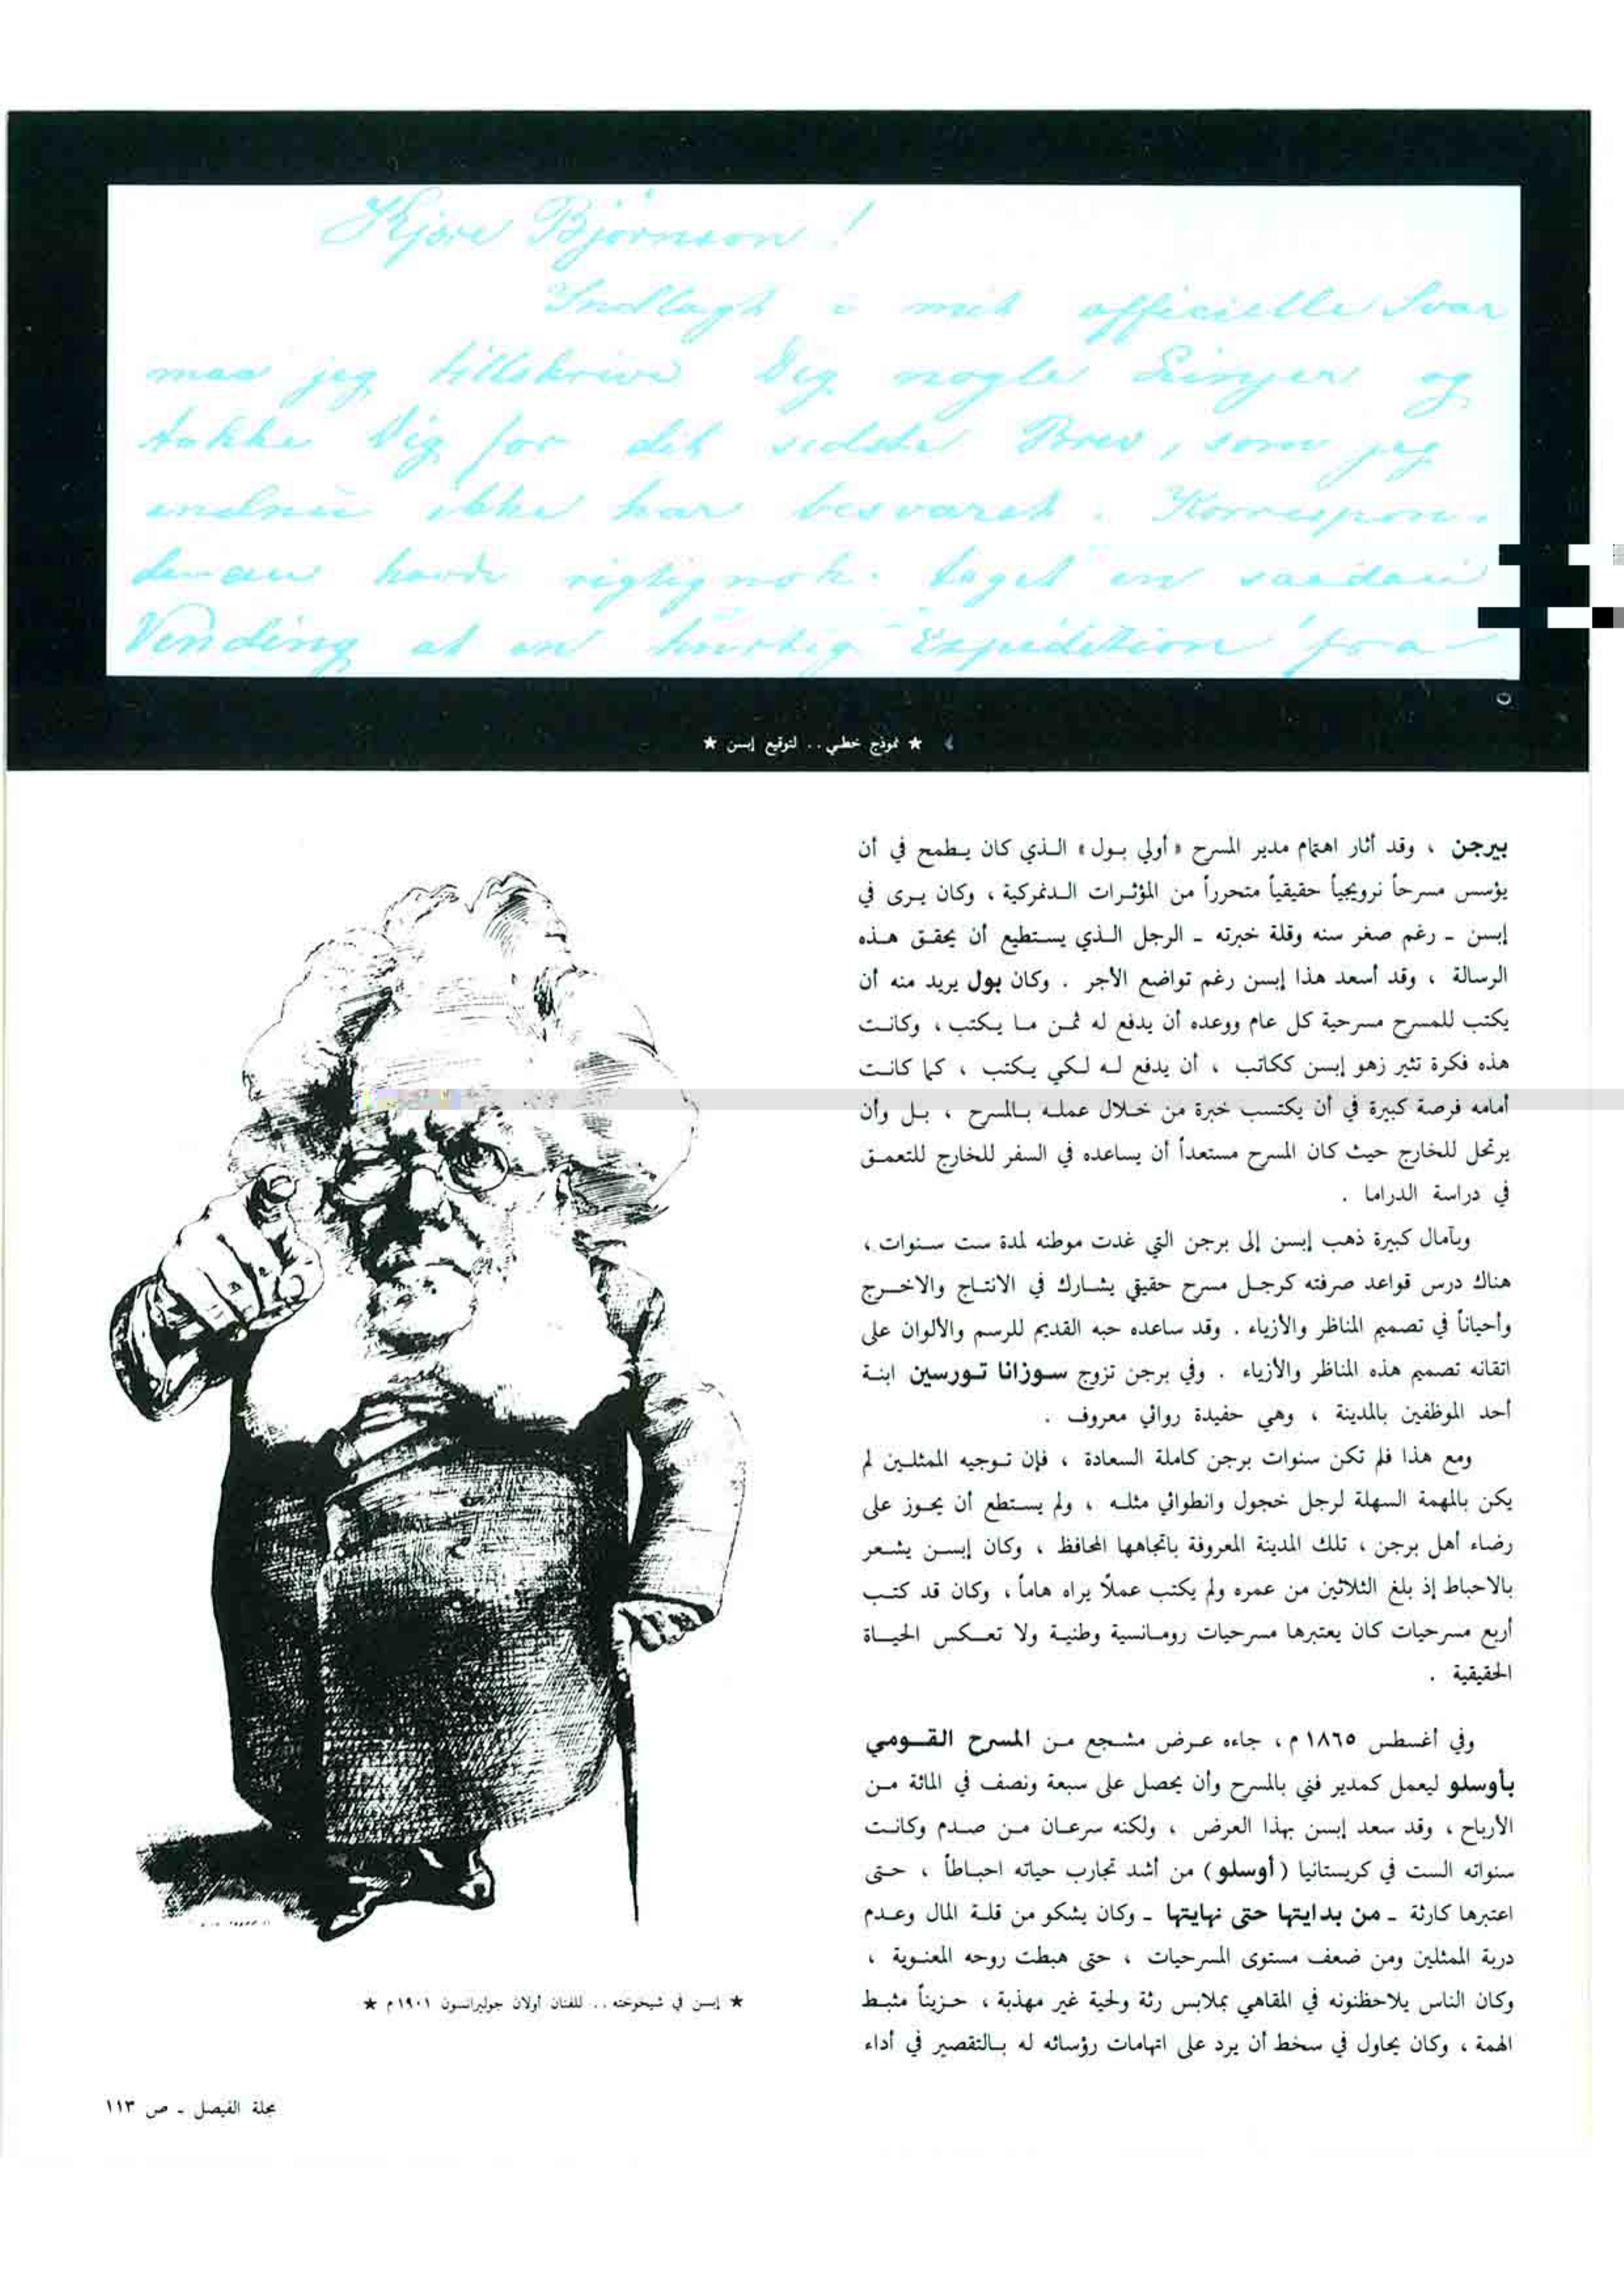 Kjære Bjørnson!
Indlagt i mit officielle Svar
maa jeg tilskrive Dig nogle Linjer og
takke Dig for dit sidste Brev, som jeg
endnu ikke har besvaret. Korrespon-
dencen havde rigtignok taget en saadan
Vending at en hurtig Expedition fra
★ نموذج خطي .. لتوقيع إبسن ★
بيرجن ، وقد أثار اهتمام مدير المسرح « أولي بول » الذي كان يطمح في أن
يؤسس مسرحاً نرويجياً حقيقياً متحرراً من المؤثرات الدنمركية ، وكان يرى في
إبسن ـ رغم صغر سنه وقلة خبرته ـ الرجل الذي يستطيع أن يحقق هذه
الرسالة ، وقد أسعد هذا إبسن رغم تواضع الأجر . وكان بول يريد منه أن
يكتب للمسرح مسرحية كل عام ووعده أن يدفع له ثمن ما يكتب ، وكانت
هذه فكرة تثير زهو إبسن ككاتب ، أن يدفع له لكي يكتب ، كما كانت
أمامه فرصة كبيرة في أن يكتسب خبرة من خلال عمله بالمسرح ، بل وأن
يرتحل للخارج حيث كان المسرح مستعداً أن يساعده في السفر للخارج للتعمق
في دراسة الدراما .
وبآمال كبيرة ذهب إبسن إلى برجن التي غدت موطنه لمدة ست سنوات ،
هناك درس قواعد صرفته كرجل مسرح حقيقي يشارك في الانتاج والاخرج
وأحياناً في تصميم المناظر والأزياء . وقد ساعده حبه القديم للرسم والألوان على
اتقانه تصميم هذه المناظر والأزياء . وفي برجن تزوج سوزانا تورسين ابنة
أحد الموظفين بالمدينة ، وهي حفيدة روائي معروف .
ومع هذا فلم تكن سنوات برجن كاملة السعادة ، فإن توجيه الممثلين لم
يكن بالمهمة السهلة لرجل خجول وانطوائي مثله ، ولم يستطع أن يحوز على
رضاء أهل برجن ، تلك المدينة المعروفة باتجاهها المحافظ ، وكان إبسن يشعر
بالاحباط إذ بلغ الثلاثين من عمره ولم يكتب عملاً يراه هاماً ، وكان قد كتب
أربع مسرحيات كان يعتبرها مسرحيات رومانسية وطنية ولا تعكس الحياة
الحقيقية .
وفي أغسطس ١٨٦٥ م ، جاءه عرض مشجع من المسرح القومي
بأوسلو ليعمل كمدير فني بالمسرح وأن يحصل على سبعة ونصف في المائة من
الأرباح ، وقد سعد إبسن بهذا العرض ، ولكنه سرعان من صدم وكانت
سنواته الست في كريستانيا ( أوسلو ) من أشد تجارب حياته احباطاً ، حتى
اعتبرها كارثة ـ من بدايتها حتى نهايتها ـ وكان يشكو من قلة المال وعدم
دربة الممثلين ومن ضعف مستوى المسرحيات ، حتى هبطت روحه المعنوية ،
وكان الناس يلاحظنونه في المقاهي بملابس رثة ولحية غير مهذبة ، حزيناً مثبط
الهمة ، وكان يحاول في سخط أن يرد على اتهامات رؤسائه له بالتقصير في أداء
★ إبسن في شيخوخته .. للفنان أولان جولبرانسون ١٩٠١ م ★
مجلة الفيصل ـ ص ١١٣